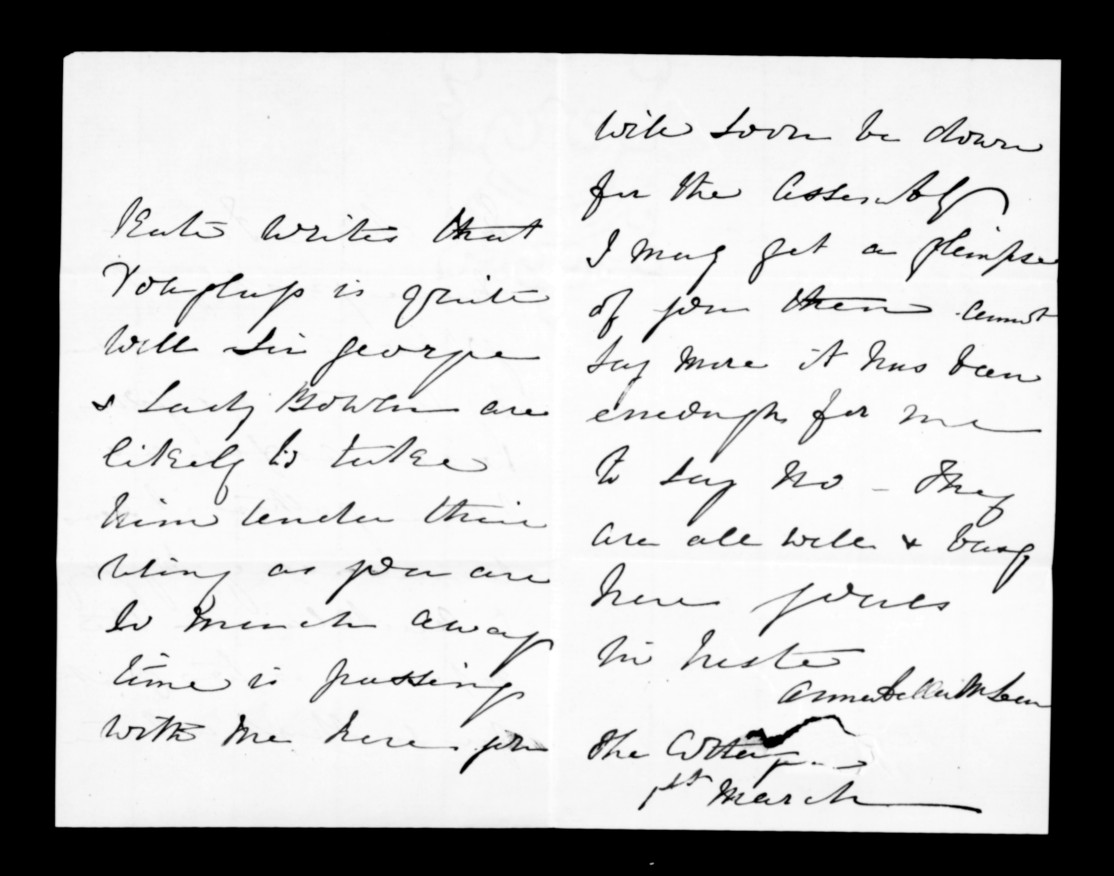 Kate writes that
is quite
well Sir George
& Lady Bowen are
likely to take
him under their
wing as you are
so much away
time is passing
with me here you
will soon be down
for the Assembly
I may get a glimpse
of you then cannot
say more it has been
enough for me
to say No - They
are all well & busy
here yours
in haste
Annabella McLean
The Cottage
1st March